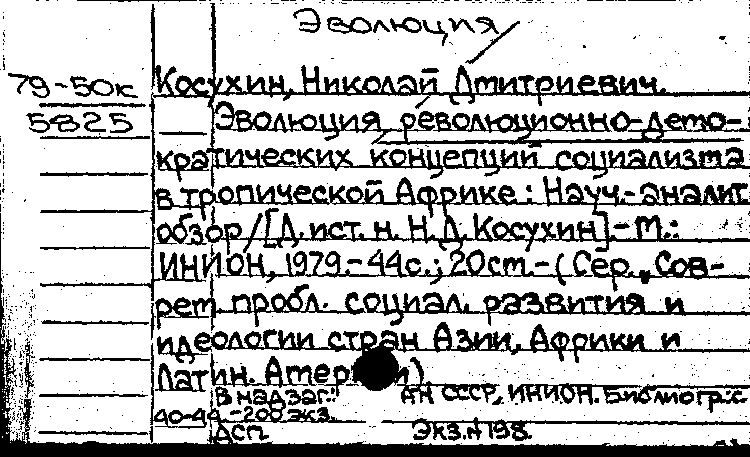 Эволюция
79-50к Косухин, Николай Дмитриевич.
5825 Эволюция революционно-демо-
кратических концепций социализма
в тропической Африке: Науч.-аналит.
обзор/[Д. ист. н. Н. Д. Косухин].-М.:
ИНИОН, 1979.-44с.; 20см.-(Сер. "Сов-
рем. пробл. социал. развития и
идеологии стран Азии, Африки и
Латин. Америки)
В надзаг.: АН СССР, ИНИОН. Библиогр.: с.
40-44.-200 экз.
ДСП Экз.№198